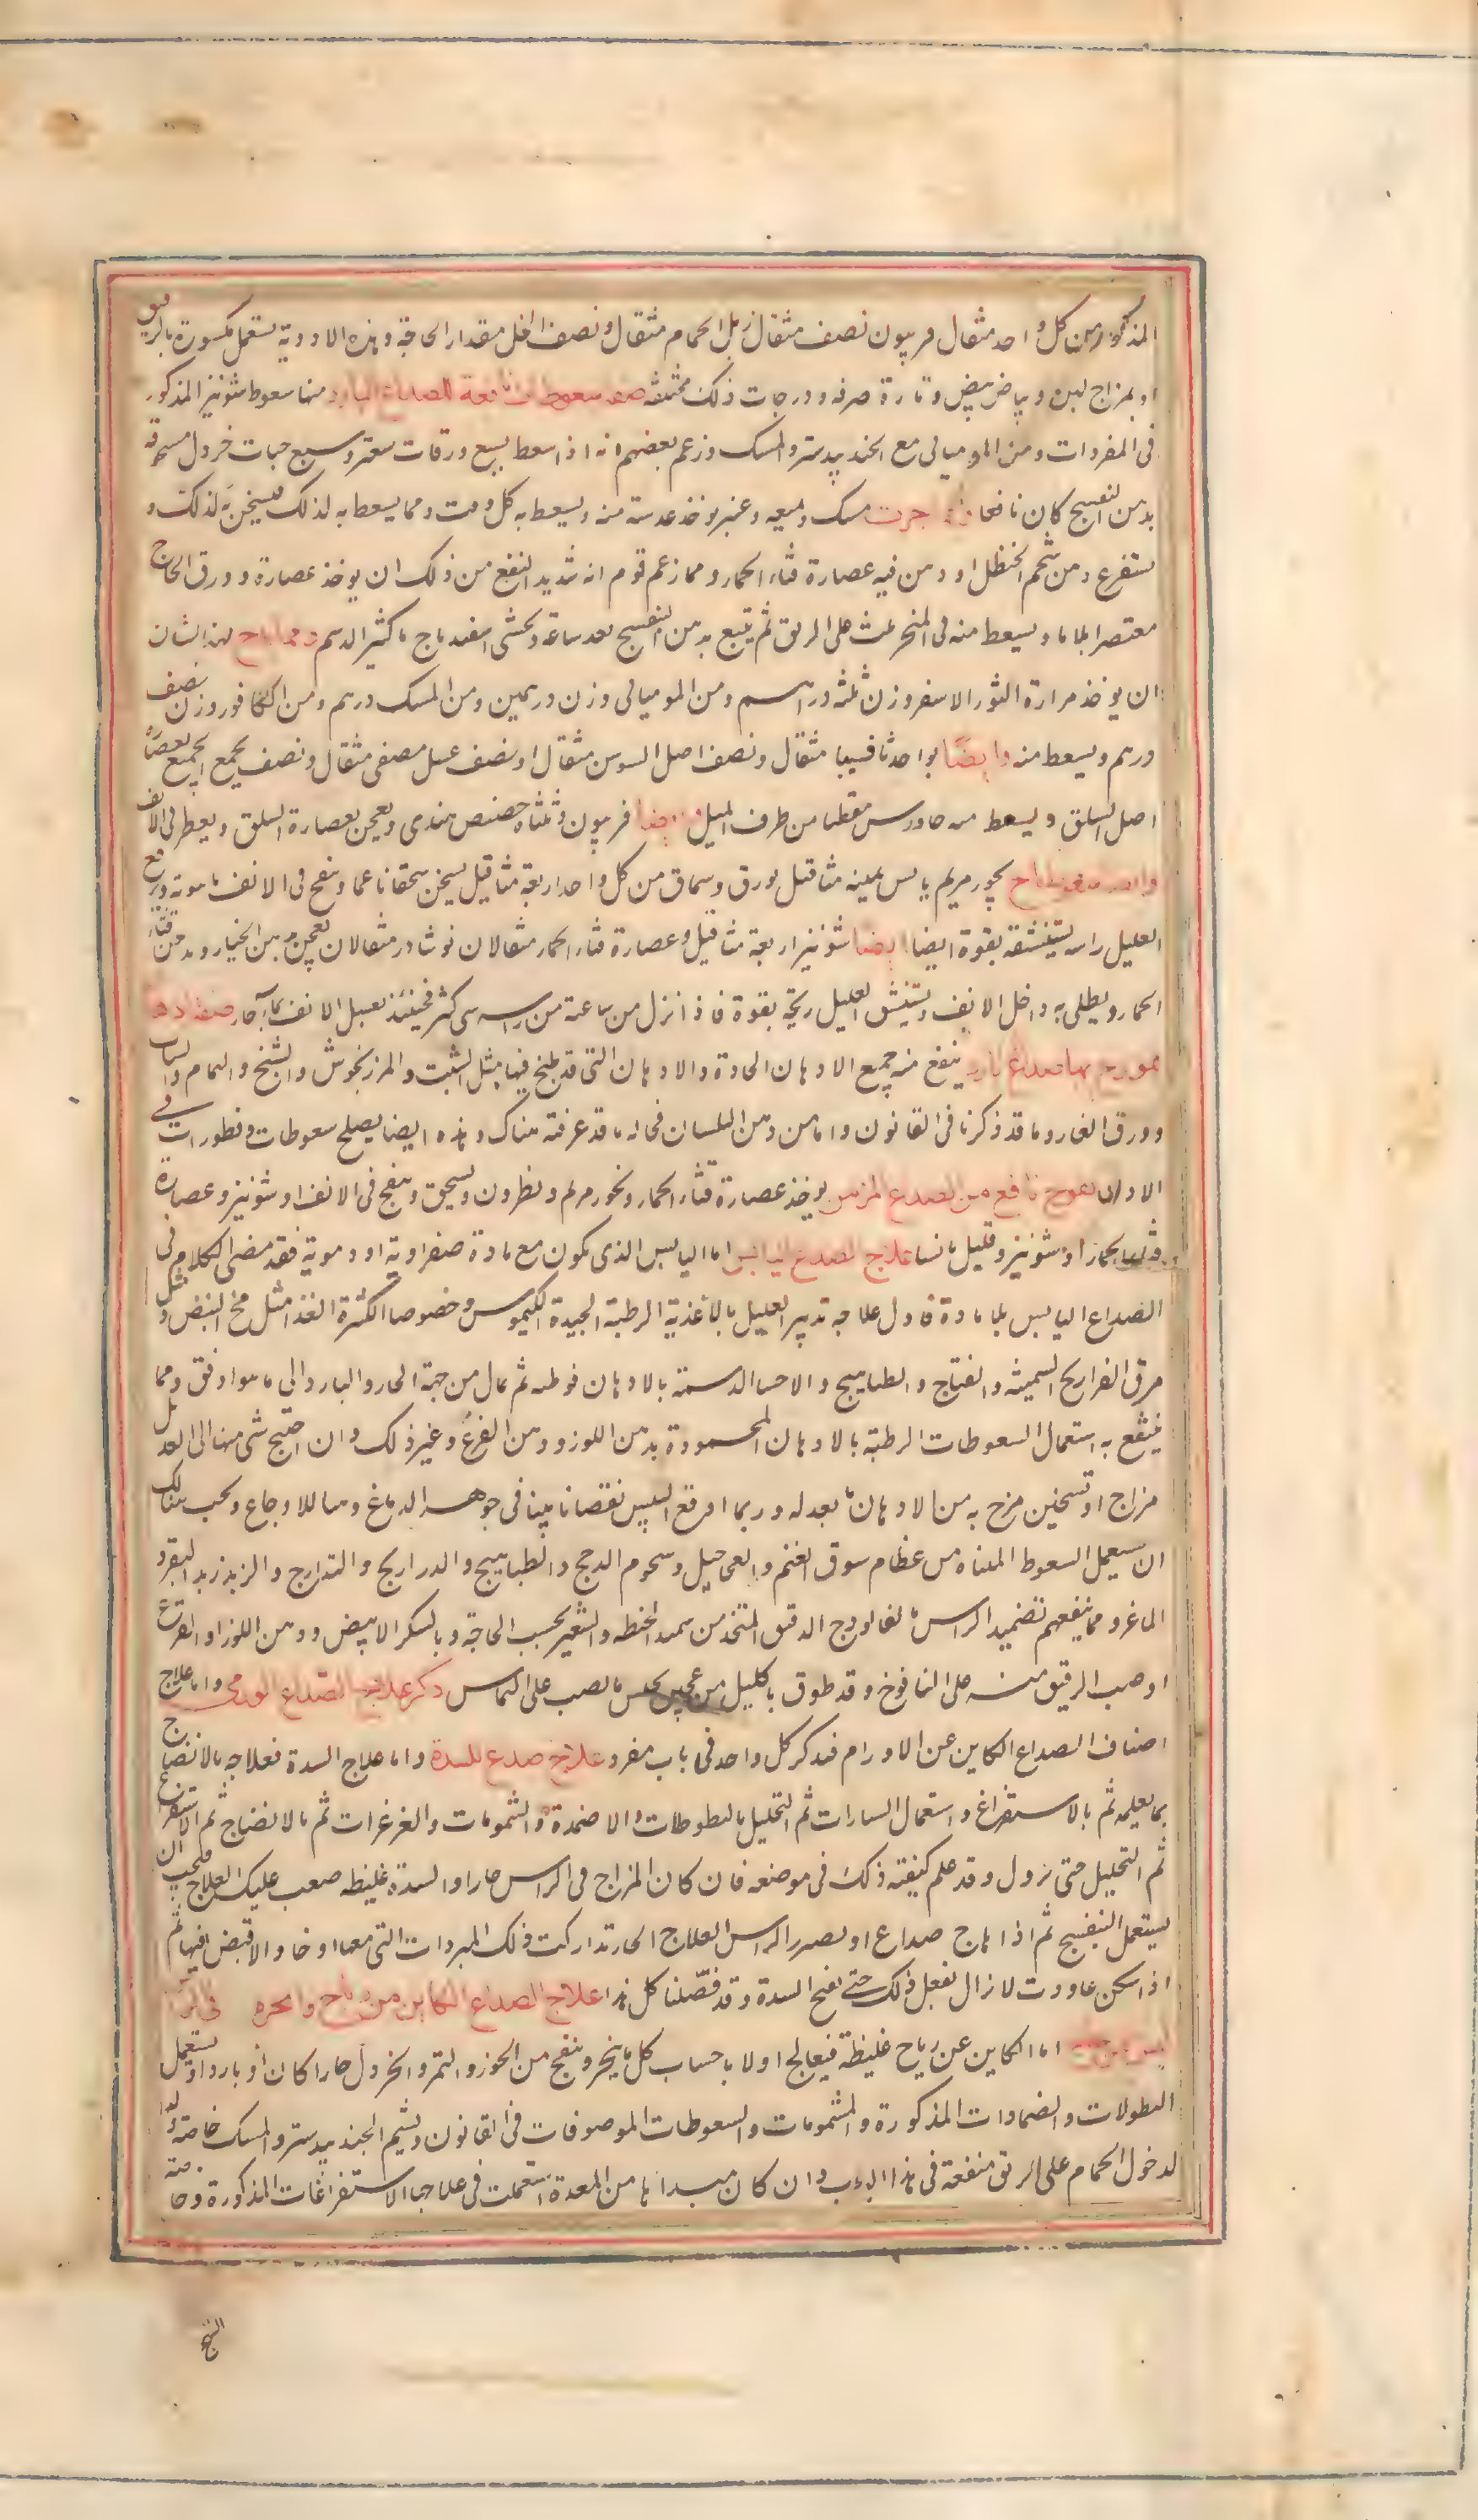 المذكور من كل واحد مثقال فربيون نصف مثقال زبل الحمام مثقال ونصف الخل مقدار الحاجة وهذه الادوية تستعمل مكسورة بالريق
او بمزاج لبن وبياض بيض وتارة صرفه ودرجات ذلك مختلفه صفه سعوطات نافعة للصداع البارد منها سعوط شونيز المذكور
فى المفردات ومن الموميائى مع الجندبيدستر والمسك وزعم بعضهم انه اذا سعط بسبع ورقات سعتر وسبع حبات خردل مسحوقه
بدهن البنفسج كان نافعا جرب مسك وميعه وعنبر يوخذ عدسة منه ويسعط به كل وقت ومما يسعط به لذلك فيسخن لذلك و
يستفرغ دهن شحم الحنظل او دهن فيه عصارة قثاء الحمار ومما زعم قوم انه شديد النفع من ذلك ان يوخذ عصارة ورق الحاج
معتصرا بلا ماء ويسعط منه فى المنخر ثلث على الريق ثم يتبع بدهن البنفسج بعد ساعة ويحسى اسفيدباج كثير الدسم ومما لهذا الشان
ان يوخذ مرارة الثور الاسفر وزن ثلثه دراهم ومن الموميائى وزن درهمين ومن المسك درهم ومن الكافور وزن نصف
درهم ويسعط منه وايضا يواخد ثافسيا مثقال ونصف اصل السوسن مثقال ونصف عسل مصفى مثقال ونصف يجمع الجميع بعصاره
اصل السلق ويسعط منه جاورس مقطبا من طرف الميل وايضا فربيون وثلثاه حضض هندى ويعجن بعصارة السلق ويقطر فى الانف
بخور مريم يابس ثمينه مثاقيل بورق وسماق من كل واحد اربعة مثاقيل يسحق سحقا ناعما وينفخ فى الانف بانبوبة ويرفع
العليل راسه ليستنشقه بقوة ايضا ايضا شونيز اربعة مثاقيل وعصارة قثاء الحمار مثقالان نوشادر مثقالان يعجن بدهن الخيار ودهن قثاء
الحمار ويطلى به داخل الانف ويستنشق العليل ريحه بقوة فاذا نزل من ساعته من راسه شى كثير فحينئذ يغسل الانف بماء حار صفة ادهان
يمرخ بها صداع بارد ينفع منه جميع الادهان الحادة والادهان التى قد طبخ فيها مثل الشبت والمرزنجوش والشيح والنمام والسداب
وورق الغار وما قد ذكرنا فى القانون واما من دهن البلسان فحاله ما قد عرفته هناك وهذه ايضا يصلح سعوطات وقطورات فى
الاذن نفوخ نافع من الصداع المزمن يوخذ عصارة قثاء الحمار وبخور مريم ونطرون ويسحق وينفخ فى الانف او شونيز وعصارة
قثاء الحمار او شونيز وقليل مانسا علاج الصداع اليابس اما اليابس الذى يكون مع مادة صفراوية او دموية فقد مضى الكلام فى
الصداع اليابس بلا مادة فاول علاجه تدبير العليل بالاغذية الرطبة الجيدة الكيموس وخصوصا الكثيرة الغذا مثل مخ البيض ومثل
مرق الفراريج السمينه والقباج والطياهيج والاحساء الدسمة بالادهان الرطبه ثم يمال من جهة الحار والبارد الى ما هو اوفق ومما
ينتفع به استعمال السعوطات الرطبة بالادهان المحمودة بدهن اللوز ودهن القرع وغير ذلك وان احتيج شى منها الى تعديل
مزاج او تسخين مزج به من الادهان ما يعدله وربما اوقع اليبس نقصانا بينا فى جوهر الدماغ وهيا للاوجاع ويجب هنالك
ان يستعمل السعوط المتخذ من عظام سوق الغنم والعجاجيل وشحوم الدجج والطياهيج والدراريج والتدارج والزبد زبد البقر و
الماعز ومما ينفعهم تضميد الراس بالفالودج الدقيق المتخذ من سميد الحنطه والشعير بحسب الحاجة وبالسكر الابيض ودهن اللوز او القرع
او صب الرقيق منه على اليافوخ وقد طوق باكليل من عجين يحبس ما يصب على الراس ذكر علاج الصداع الورمى واما علاج
اصناف الصداع الكاين عن الاورام فنذكر كل واحد فى باب مفرد علاج صداع للسدة واما علاج السدة فعلاجه بالانضاج
بما يعلمه ثم بالاستفراغ واستعمال السيارات ثم التحليل بالنطولات والاضمدة والشمومات والغرغرات ثم بالانضاج ثم الاستفراغ
ثم التحليل حتى يزول وقد علم كيفية ذلك فى موضعه فان كان المزاج فى الراس حارا والسدة غليظه صعب عليك العلاج فيجب ان
يستعمل البنفسج ثم اذا هاج صداع او يضرر الراس العلاج الحار تداركت ذلك المبردات التى معها ارخاء ولا قبض فيها ثم
اذا سكن عاودت لا تزال تفعل ذلك حتى تفتح السدة وقد فصلنا كل هذا علاج الصداع الكاين من رياح وابخرة فى الراس
اما الكاين عن رياح غليظة فيعالج اولا باجتناب كل ما يبخر وينفخ من الجوز والتمر والخردل حارا كان او باردا ويستعمل
النطولات والضمادات المذكورة والشمومات والسعوطات الموصوفات فى القانون ويشم الجندبيدستر والمسك خاصة
لدخول الحمام على الريق منفعة فى هذا الباب وان كان مبداها من المعدة استعملت فى علاجها الاستفراغات المذكورة وخاصة